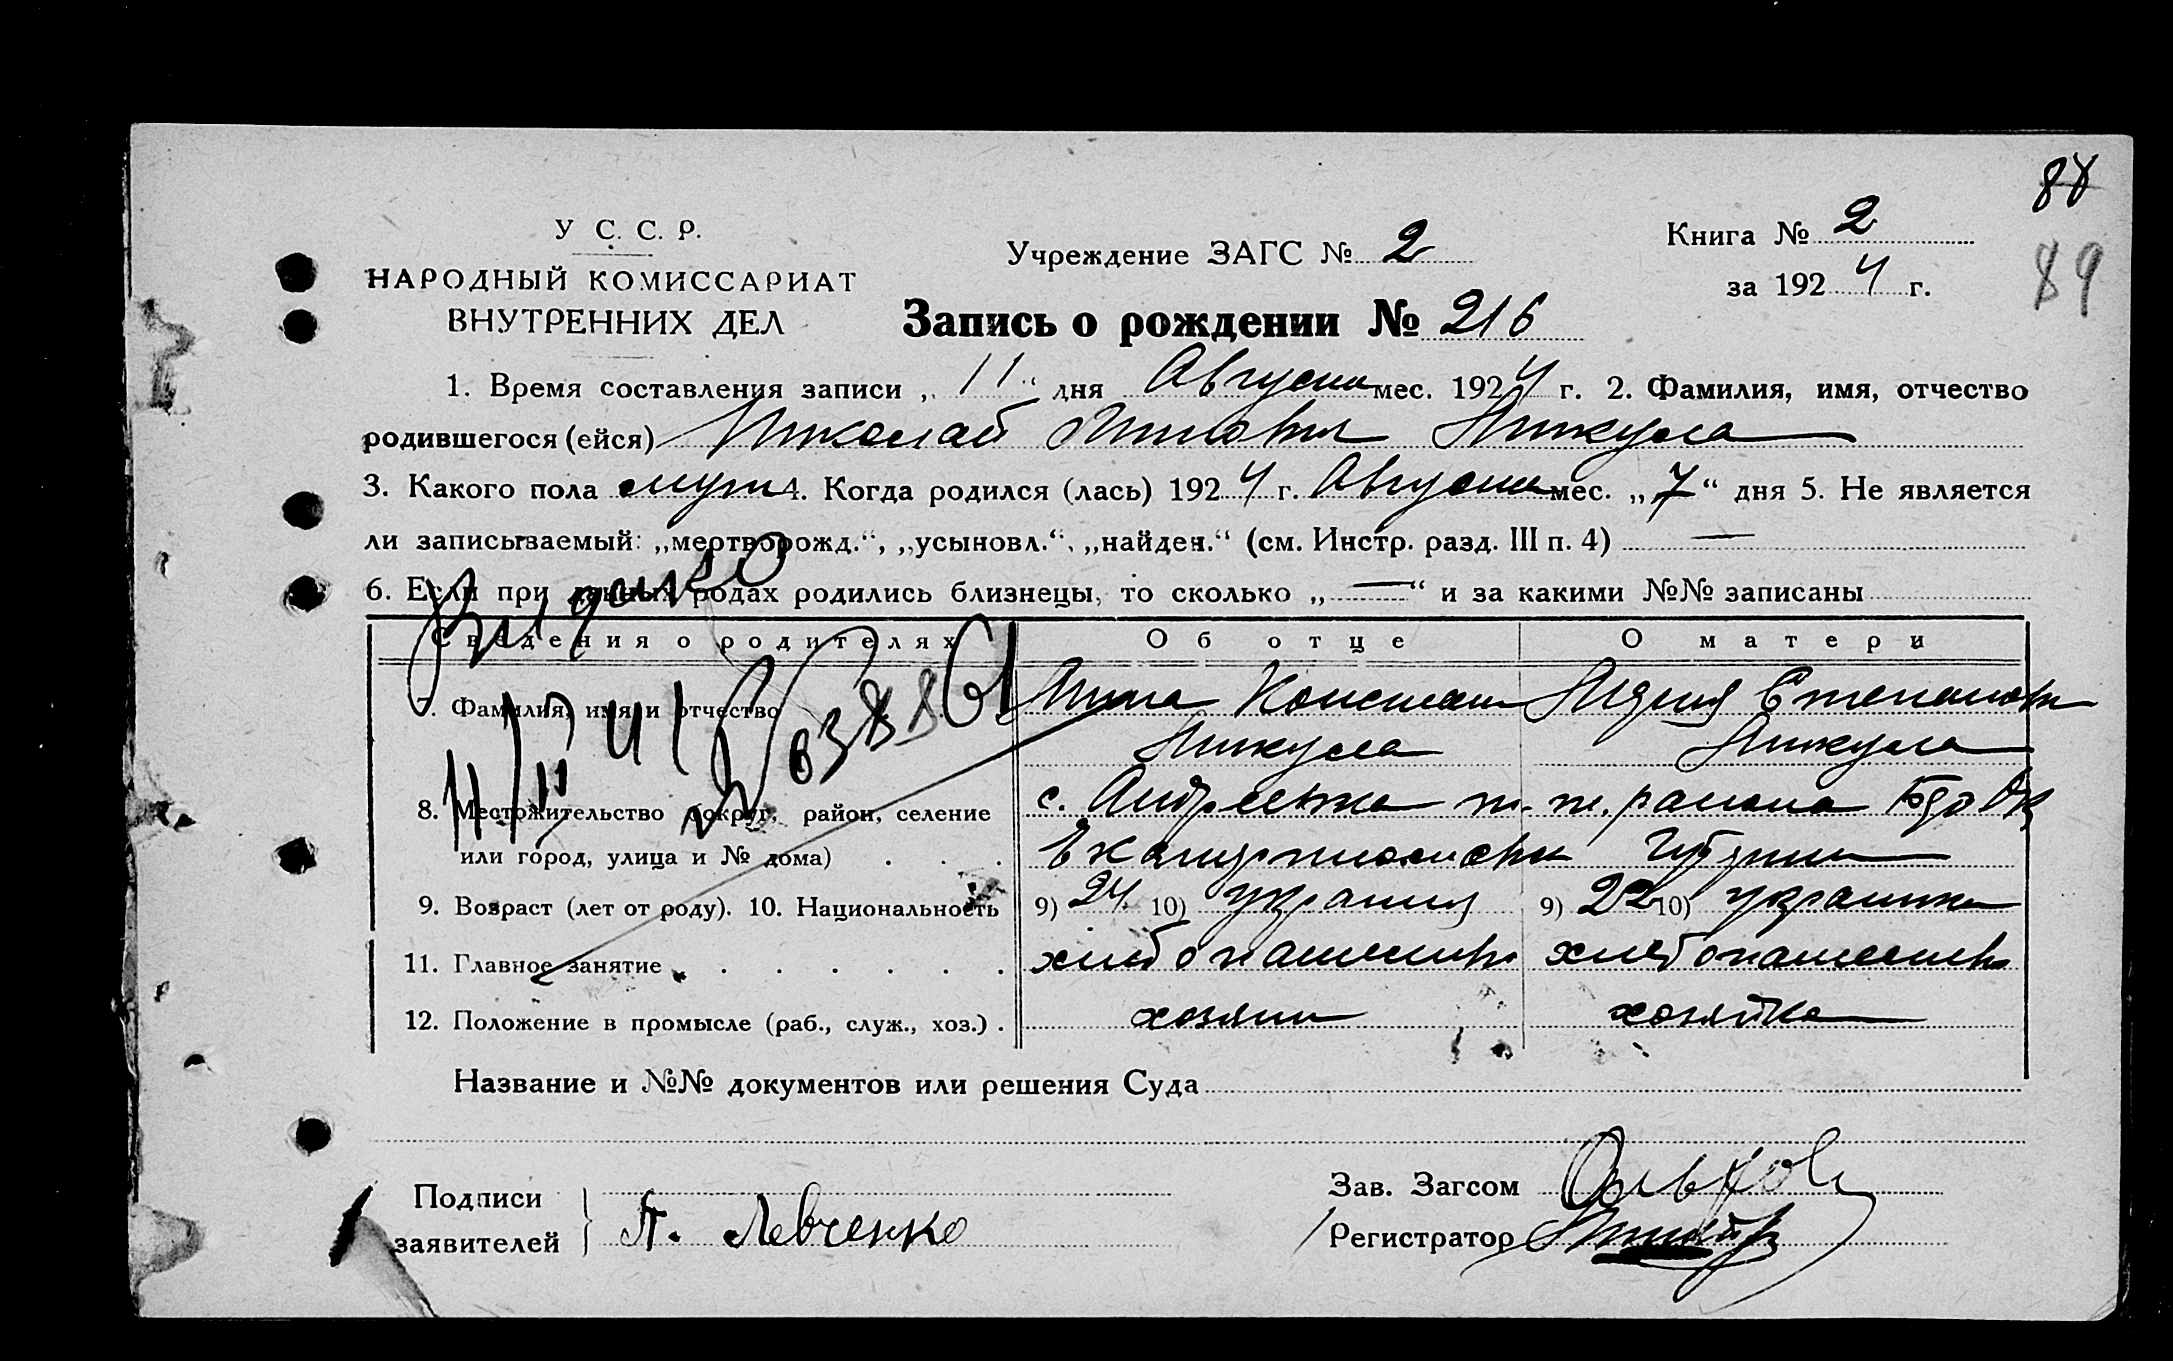 88
У С. С. Р.
НАРОДНЫЙ КОМИССАРИАТ
ВНУТРЕННИХ ДЕЛ
Учреждение ЗАГС № 2
Книга № 2
за 1924 г.
89
Запись о рождении № 216
1. Время составления записи „11“ дня Августа мес. 1924 г. 2. Фамилия, имя, отчество
родившегося (ейся) Николай Никула
3. Какого пола муж 4. Когда родился (лась) 1924 г. Августа мес. „7“ дня 5. Не является
ли записываемый: „мертворожд.“, „усыновл.“, „найден.“ (см. Инстр. разд. III п. 4) —
6. Если при данных родах родились близнецы, то сколько „—“ и за какими №№ записаны
Сведения о родителях Об отце О матери
7. Фамилия, имя и отчество Констан Лидия Степанов
Никула Никула
8. Местожительство (округ, район, селение с. Андреевка района
или город, улица и № дома) . . . Екатеринославск губернии
9. Возраст (лет от роду). 10. Национальность 9) 24 10) украинц 9) 22 10) украинка
11. Главное занятие . . . . . . хлебопашеств хлебопашеств
12. Положение в промысле (раб., служ., хоз.) . хозяин хозяйка
Название и №№ документов или решения Суда
Подписи
заявителей } П. Левченко
Зав. Загсом
Регистратор